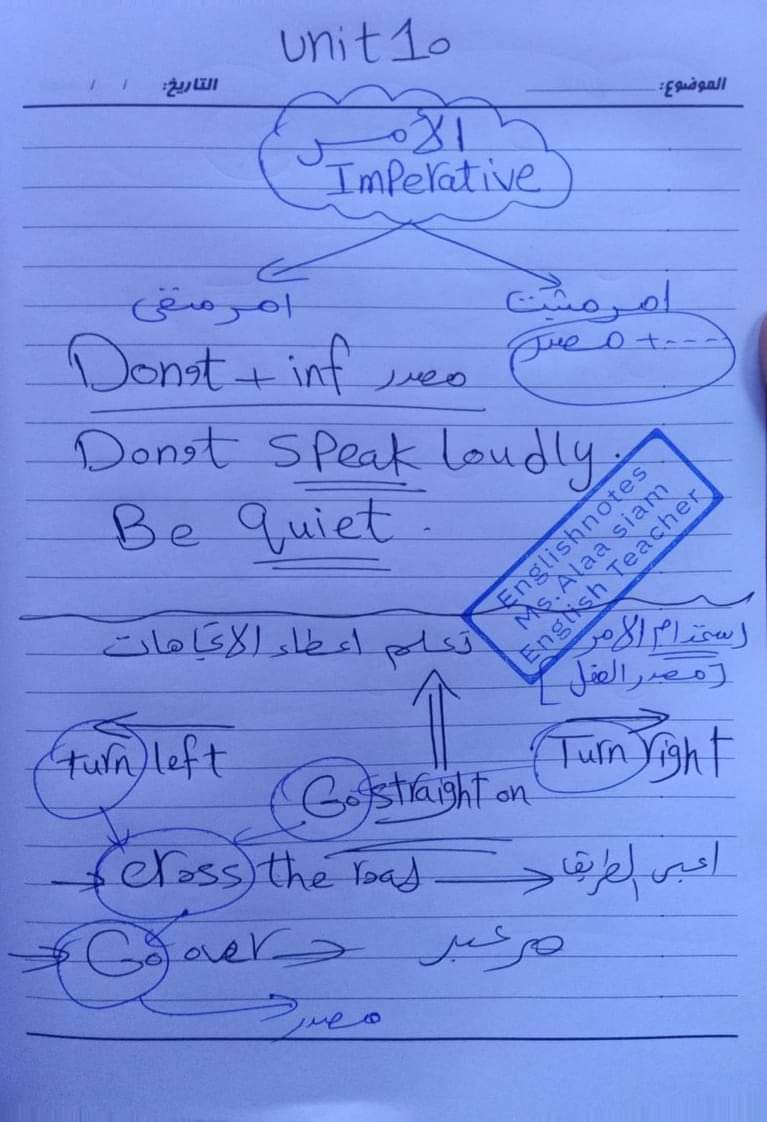 Unit 10
الموضوع: التاريخ: / /
الأمر
Imperative
امر مثبت امر منفى
مصدر + ----
Don't + inf مصدر
Don't speak loudly.
Be quiet.
Englishnotes
Ms. Alaa siam
English Teacher
استخدام الامر تعلم اعطاء الاتجاهات
[مصدر الفعل]
turn left Turn right
Go straight on
cross the road اعبر الطريق
Go over مر عبر
مصدر